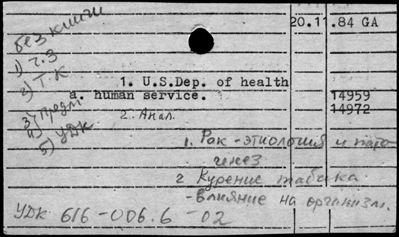 20.11.84 GA
без книги
1) Ч.З
2) Т.К
3) Предм
4)
5) УДК
1. U.S.Dep. of health
a. human service.
14959
14972
2. Анал.
1. Рак - этиология и пато
генез
2 Курение табака
- влияние на организм.
УДК 616-006.6 -02